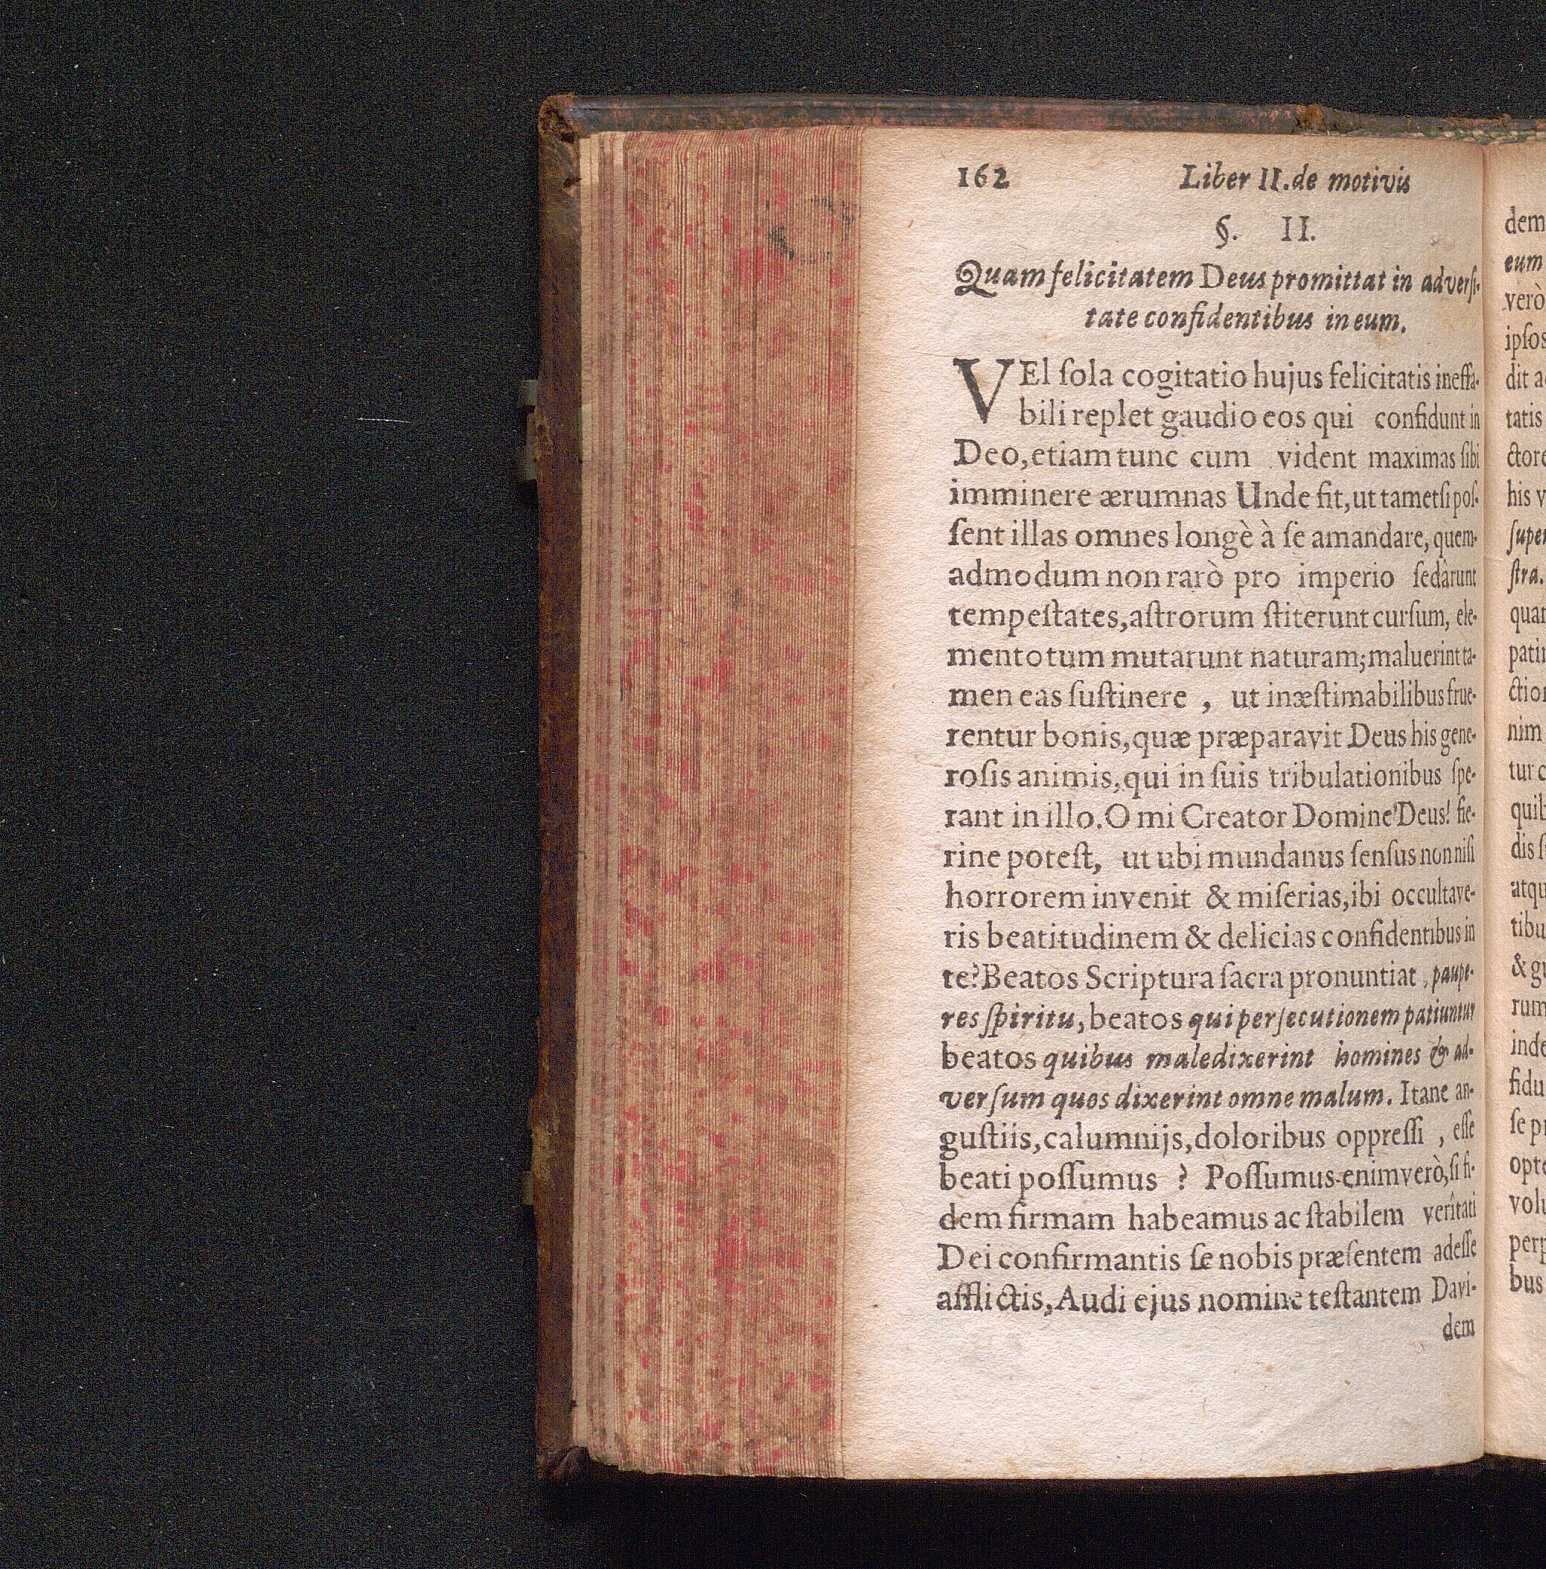 162 Liber II. de motivis
§. II.
Quam felicitatem Deus promittat in adversi-
tate confidentibus in eum.
VEl ſola cogitatio hujus felicitatis ineffa-
bili replet gaudio eos qui confidunt in
Deo, etiam tunc cum vident maximas ſibi
imminere ærumnas Unde fit, ut tametſi poſ-
ſent illas omnes longè à ſe amandare, quem-
admodum non rarò pro imperio ſedârunt
tempeſtates, aſtrorum ſtiterunt curſum, ele-
mentotum mutarunt naturam; maluerint ta-
men eas ſuſtinere , ut inæſtimabilibus frue-
rentur bonis, quæ præparavit Deus his gene-
roſis animis, qui in ſuis tribulationibus ſpe-
rant in illo. O mi Creator Domine Deus! fie-
rine poteſt, ut ubi mundanus ſenſus non niſi
horrorem invenit & miſerias, ibi occultave-
ris beatitudinem & delicias confidentibus in
te? Beatos Scriptura ſacra pronuntiat, paupe-
res ſpiritu, beatos qui perſecutionem patiuntur
beatos quibus maledixerint homines & ad-
verſum quos dixerint omne malum. Itane an-
guſtiis, calumnijs, doloribus oppreſſi , eſſe
beati poſſumus ? Poſſumus enimverò, ſi fi-
dem firmam habeamus ac ſtabilem veritati
Dei confirmantis ſe nobis præſentem adeſſe
afflictis, Audi ejus nomine teſtantem Davi-
dem
dem
eum
verò
ipſos
dit
tatis
his
ſtra.
nim